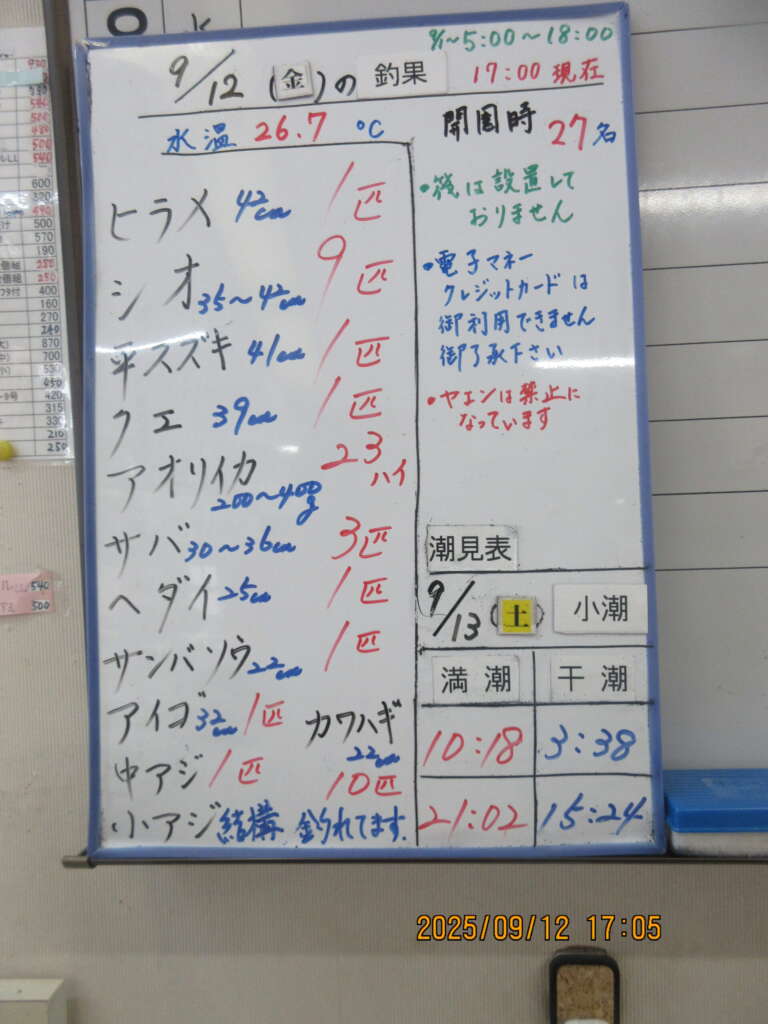 9/1～5:00～18:00
9/12(金)の 釣果 17:00 現在
水温 26.7 ℃ 開園時 27名
ヒラメ 42cm 1匹
シオ 35～42cm 9匹
平スズキ 41cm 1匹
クエ 39cm 1匹
アオリイカ 200～400g 23ハイ
サバ 30～36cm 3匹
ヘダイ 25cm 1匹
サンバソウ 22cm 1匹
アイゴ 32cm 1匹
カワハギ 22cm 10匹
中アジ 1匹
小アジ 結構 釣れてます.
・筏は設置して
おりません
・電子マネー
クレジットカードは
御利用できません
御了承下さい
・ヤエンは禁止に
なっています
潮見表
9/13(土) 小潮
満潮 干潮
10:18 3:38
21:02 15:24
600
500
570
190
250
400
160
270
870
700
420
315
540
500
2025/09/12 17:05